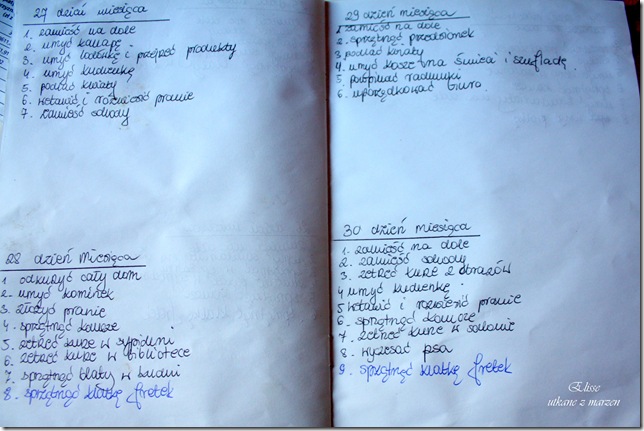 27 dzień miesiąca
1. zamieść na dole
2. umyć kanapę
3. umyć lodówkę i przejrzeć produkty
4. umyć kuchenkę
5. podlać kwiaty
6. wstawić i rozwiesić pranie
7. zamieść schody
28 dzień miesiąca
1 odkurzyć cały dom
2. umyć kominek
3. złożyć pranie
4. sprzątnąć
5. zetrzeć kurze w sypialni
6. zetrzeć kurz w bibliotece
7. sprzątnąć blaty w kuchni
8. sprzątnąć klatkę fretek
29 dzień miesiąca
1 zamieść na dole
2. sprzątnąć przedsionek
3. podlać kwiaty
4. umyć kosz na śmieci i szufladę
5. popłacić rachunki
6. uporządkować biuro
30 dzień miesiąca
1. zamieść na dole
2. zamieść schody
3. zetrzeć kurz z obrazów
4 umyć kuchenkę
5 wstawić i rozwiesić pranie
6. sprzątnąć
7. zetrzeć kurze w salonie
8. wyczesać psa
9. sprzątnąć klatkę fretek
Elisse
utkane z marzen